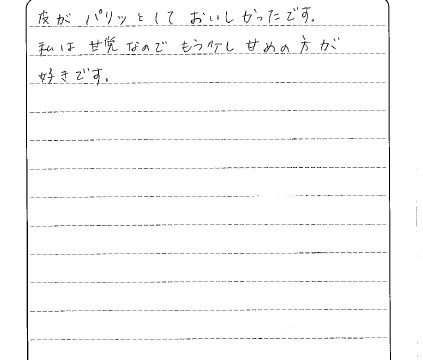 皮がパリッとしておいしかったです。
私は甘党なのでもう少し甘めの方が
好きです。